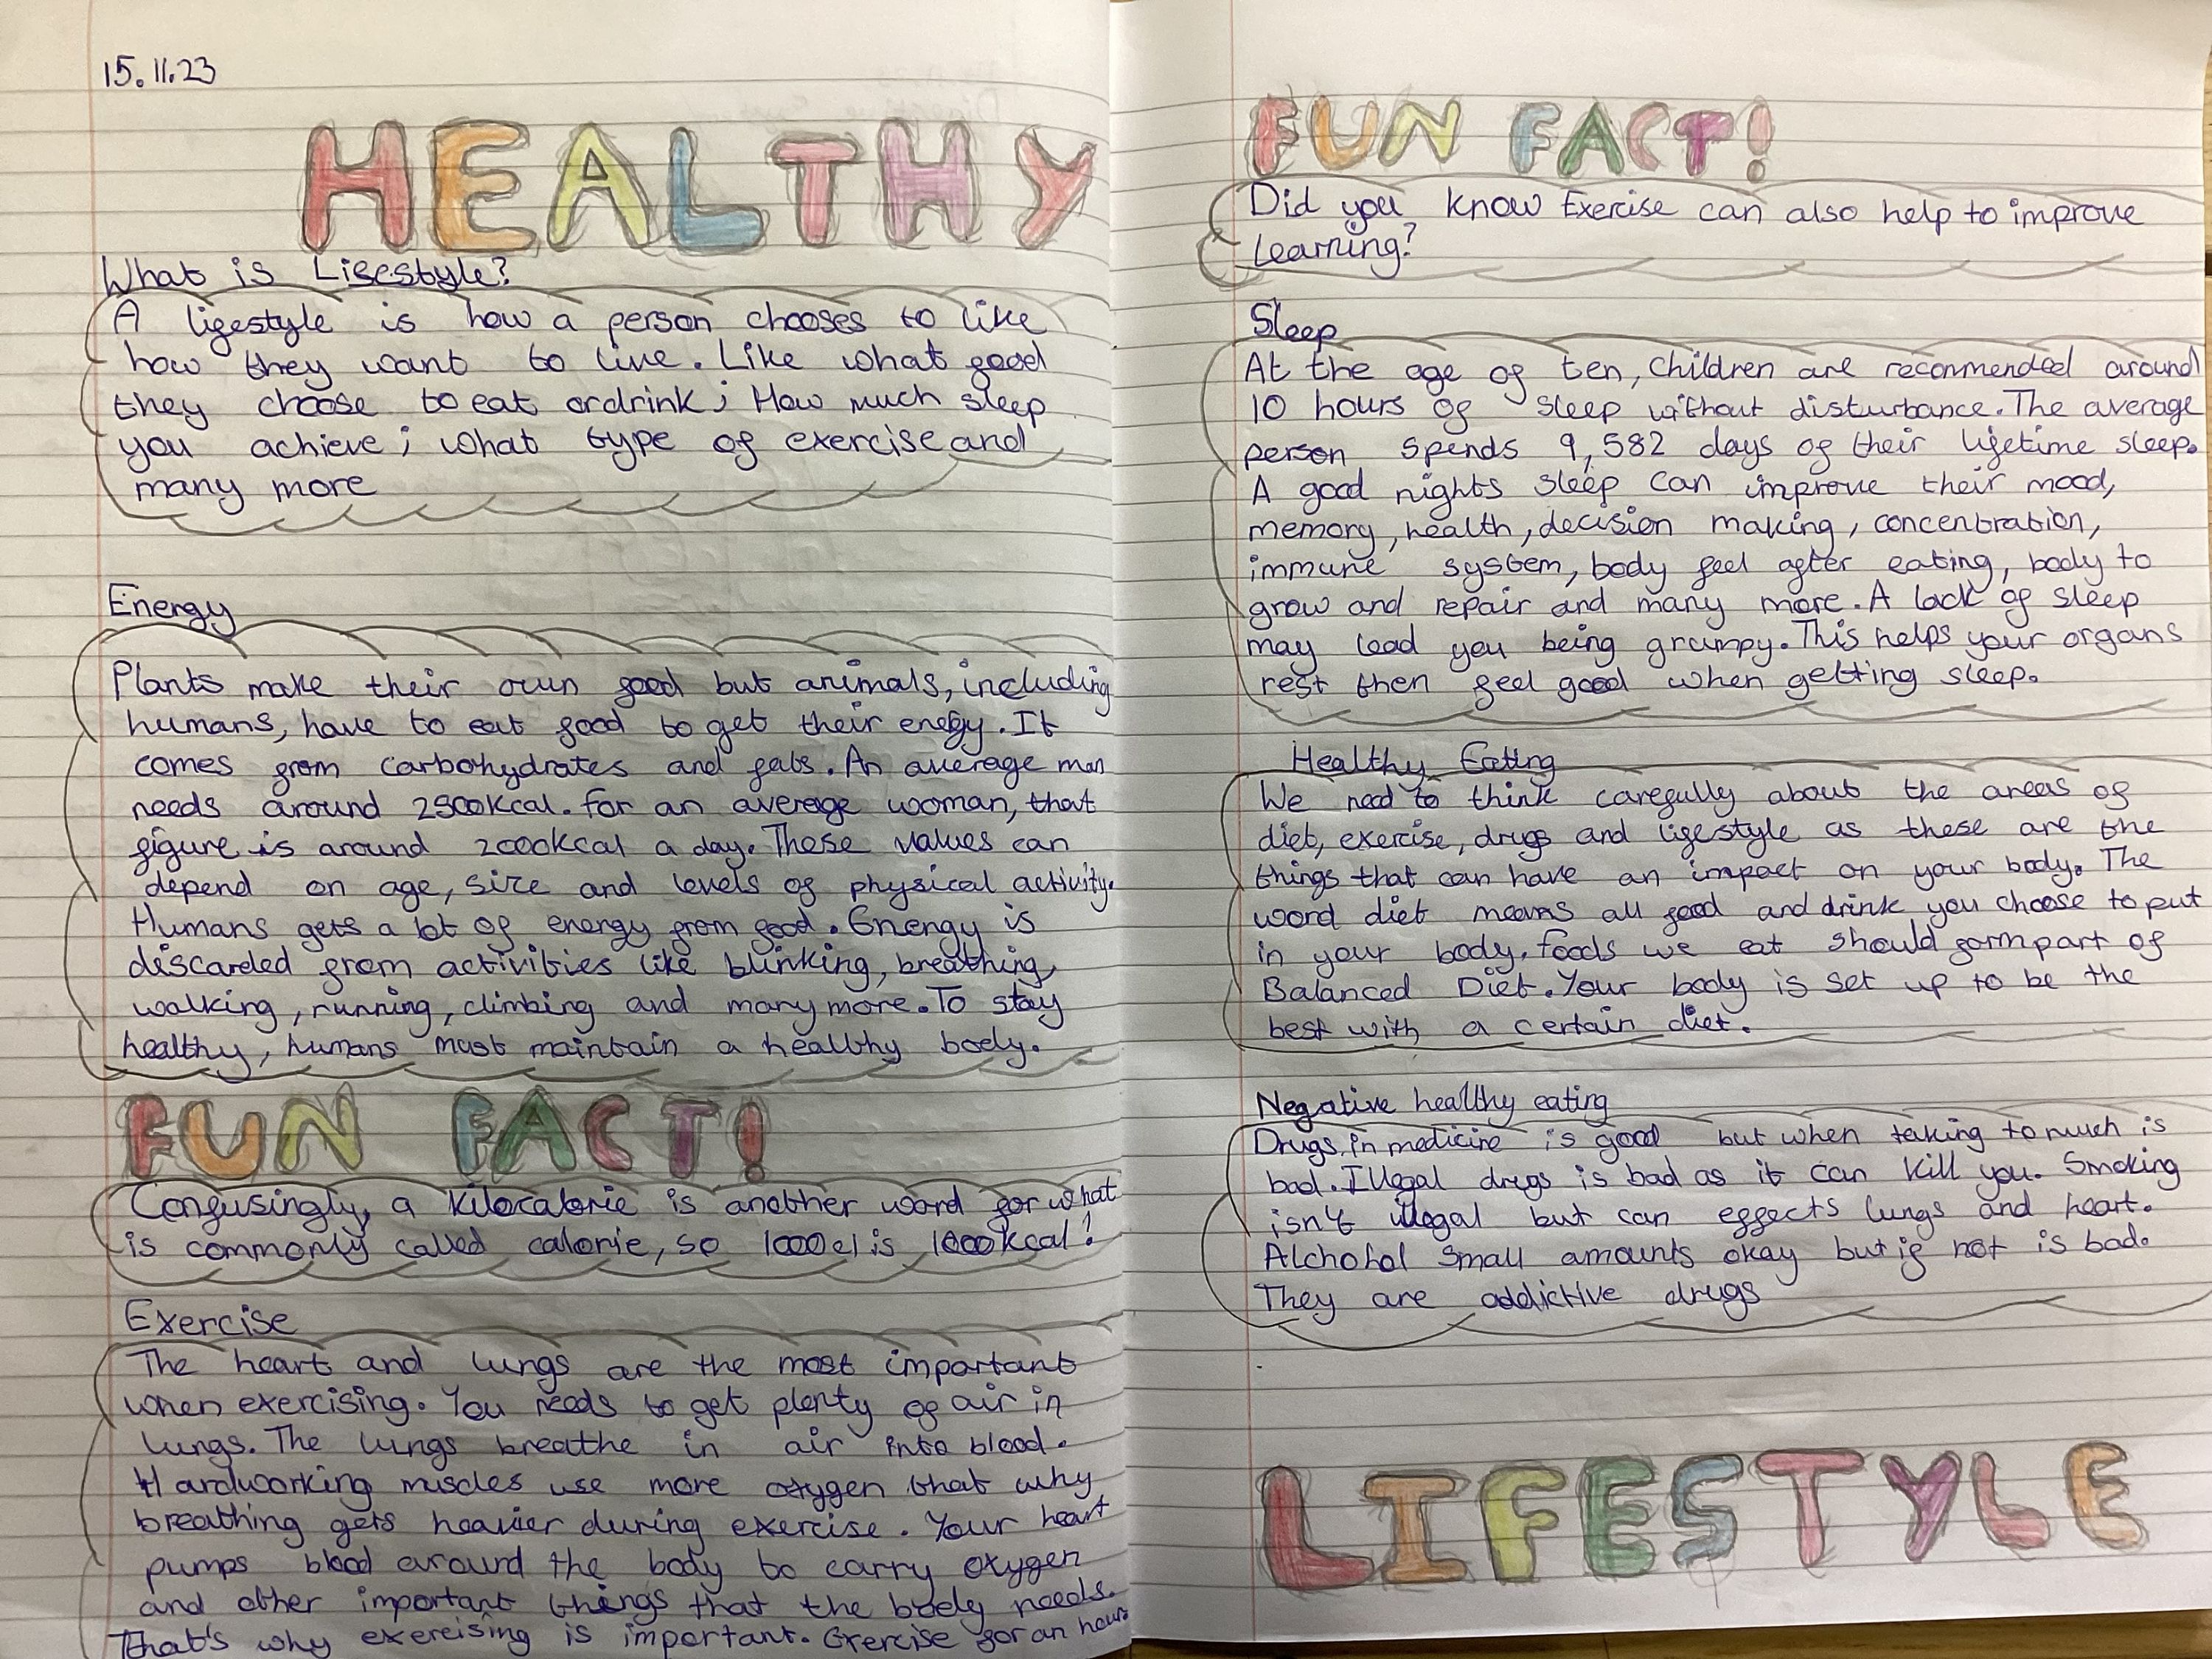 15.11.23
HEALTHY
What is Lifestyle?
A lifestyle is how a person chooses to like
how they want to live. Like what food
they choose to eat or drink; How much sleep
you achieve; what type of exercise and
many more
Energy
Plants make their own food but animals, including
humans, have to eat food to get their energy. It
comes from carbohydrates and fats. An average man
needs around 2500kcal. For an average woman, that
figure is around 2000kcal a day. These values can
depend on age, size and levels of physical activity.
Humans gets a lot of energy from food. Energy is
discarded from activities like blinking, breathing,
walking, running, climbing and many more. To stay
healthy, humans must maintain a healthy body.
FUN FACT!
Confusingly, a kilocalorie is another word for what
is commonly called calorie, so 1000cl is 1000kcal!
Exercise
The heart and lungs are the most important
when exercising. You needs to get plenty of air in
lungs. The lungs breathe in air into blood.
Hardworking muscles use more oxygen that why
breathing gets heavier during exercise. Your heart
pumps blood around the body to carry oxygen
and other important things that the body needs.
That's why exercising is important. Exercise for an hour
FUN FACT!
Did you know Exercise can also help to improve
Learning?
Sleep
At the age of ten, children are recommended around
10 hours of sleep without disturbance. The average
person spends 9,582 days of their lifetime sleep.
A good nights sleep can improve their mood,
memory, health, decision making, concentration,
immune system, body feel after eating, body to
grow and repair and many more. A lack of sleep
may lead you being grumpy. This helps your organs
rest then feel good when getting sleep.
Healthy Eating
We need to think carefully about the areas of
diet, exercise, drugs and lifestyle as these are the
things that can have an impact on your body. The
word diet means all food and drink you choose to put
in your body. Foods we eat should form part of
Balanced Diet. Your body is set up to be the
best with a certain diet.
Negative healthy eating
Drugs in medicine is good but when taking to much is
bad. Illegal drugs is bad as it can kill you. Smoking
isn't illegal but can effects lungs and heart.
Alchohol small amounts okay but if not is bad.
They are addictive drugs
LIFESTYLE